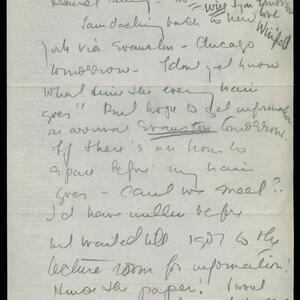 I am dashing back to New
York via Evanston - Chicago
tomorrow - I don't yet know
what time the evening train
goes" But hope to get information
on arrival Evanston tomorrow.
If there's an hour to
spare before my train
goes - can't we meet?
I'd have written before
but waited till I got to the
lecture room for information!
Hence the paper! I would
Love
Winifred